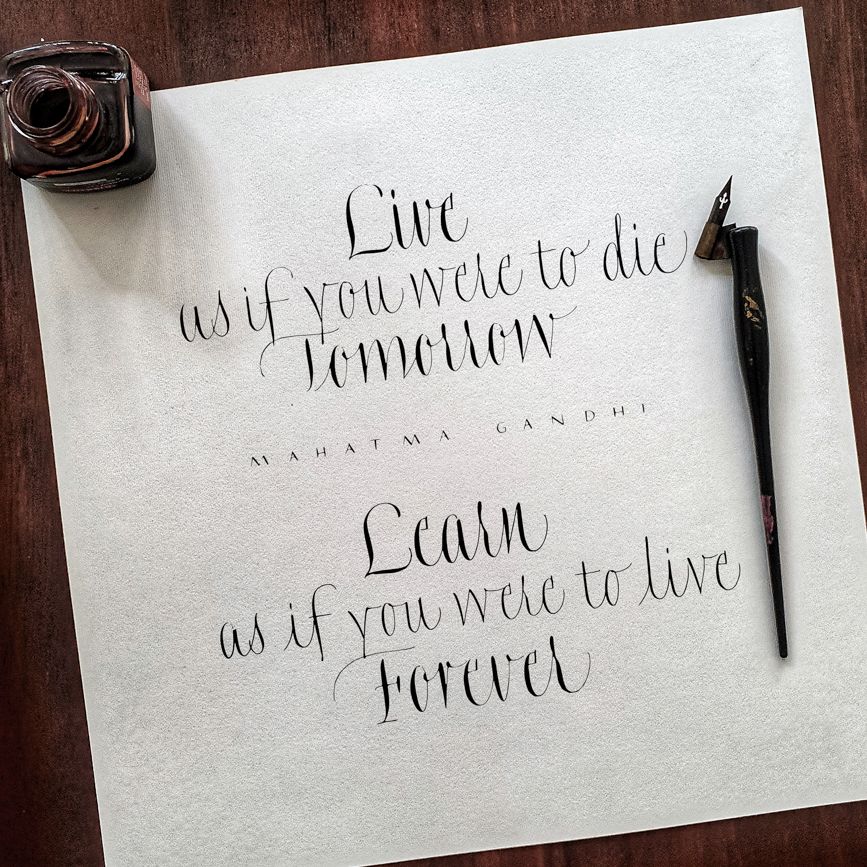 Live
as if you were to die
Tomorrow
MAHATMA GANDHI
Learn
as if you were to live
Forever